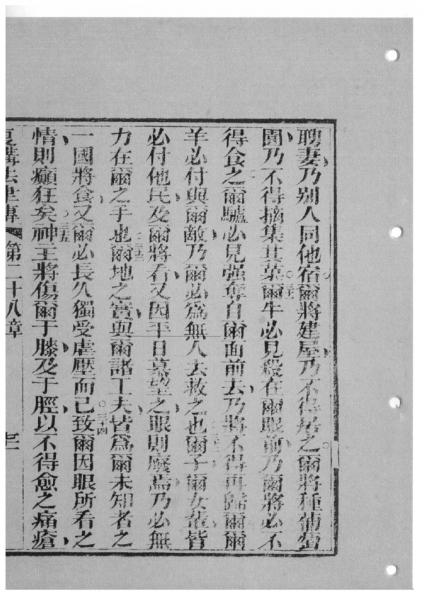 聘妻乃別人同他宿爾將建屋乃不得居之爾將種葡萄
園乃不得摘集其菓爾牛必見殺在爾眼前乃爾將必不
得食之爾驢必見强奪自爾面前去乃將不得再歸爾爾
羊必付與爾敵乃爾必為無人去救之也爾子爾女輩皆
必付他民及爾將看又因平日慕望之眼則廢焉乃必無
力在爾之手也爾地之實與爾諸工夫皆為爾未知者之
一國將食又爾必長久獨受虐壓而已致爾因眼所看之
情則癲狂矣神主將傷爾于膝及于脛以不得愈之痛瘡
復講法律傳 第二十八章